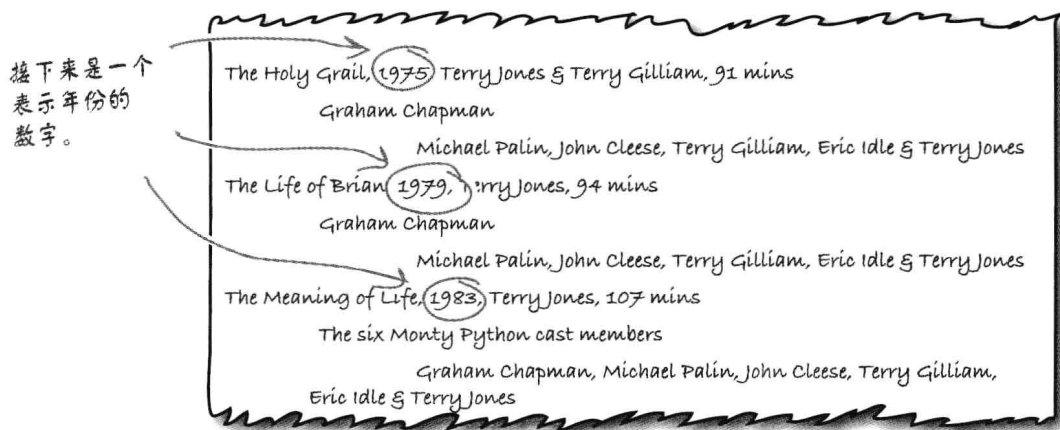 接下来是一个
表示年份的
数字。
The Holy Grail, 1975, Terry Jones & Terry Gilliam, 91 mins
Graham Chapman
Michael Palin, John Cleese, Terry Gilliam, Eric Idle & Terry Jones
The Life of Brian, 1979, Terry Jones, 94 mins
Graham Chapman
Michael Palin, John Cleese, Terry Gilliam, Eric Idle & Terry Jones
The Meaning of Life, 1983, Terry Jones, 107 mins
The six Monty Python cast members
Graham Chapman, Michael Palin, John Cleese, Terry Gilliam,
Eric Idle & Terry Jones